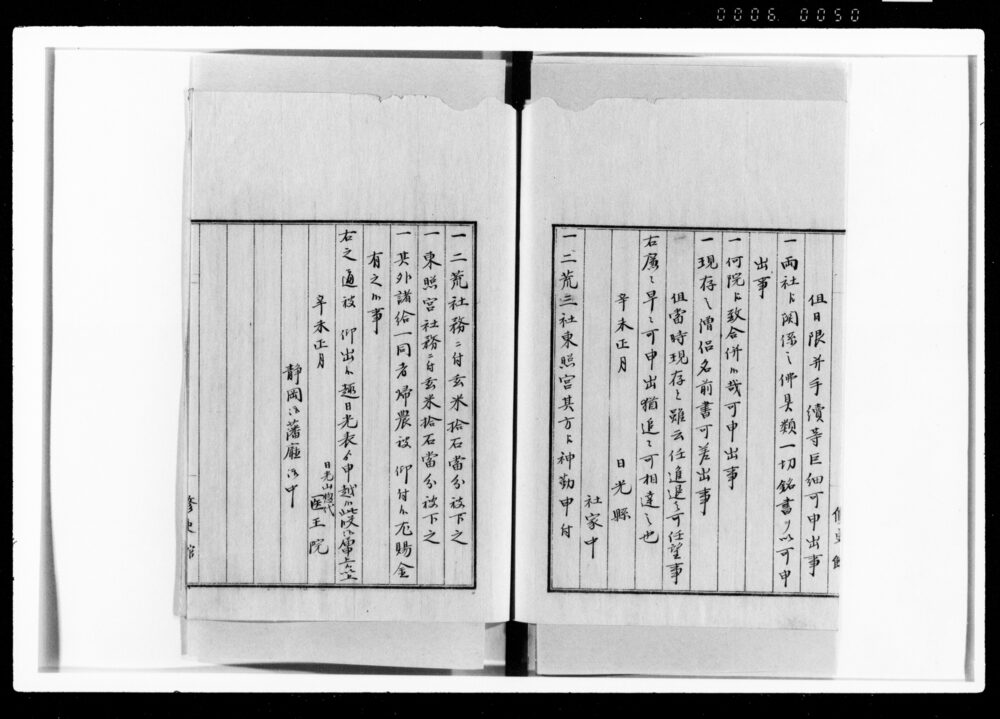 0006 0050
但日限并手續等巨細可申出事
一両社ゟ関係之佛具類一切銘書ヲ以可申
出事
一何院ゟ致合併候哉可申出事
一現存之僧侶名前書可差出事
但當時現存之雖云任進退之可任望事
右廉之早之可申出猶追之可相達之也
辛未正月
日光縣
社家中
一二荒三社東照宮其方ゟ神勤申付
修史館
一二荒社務ニ付玄米拾石當分被下之
一東照宮社務ニ付玄米拾石當分被下之
一其外諸給一同者帰農被 仰付候尤賜金
有之候事
右之通被 仰出候趣日光表ゟ申越候此段御届申上候
辛未正月
日光山惣代
医王院
静岡御藩廰御中
修史館